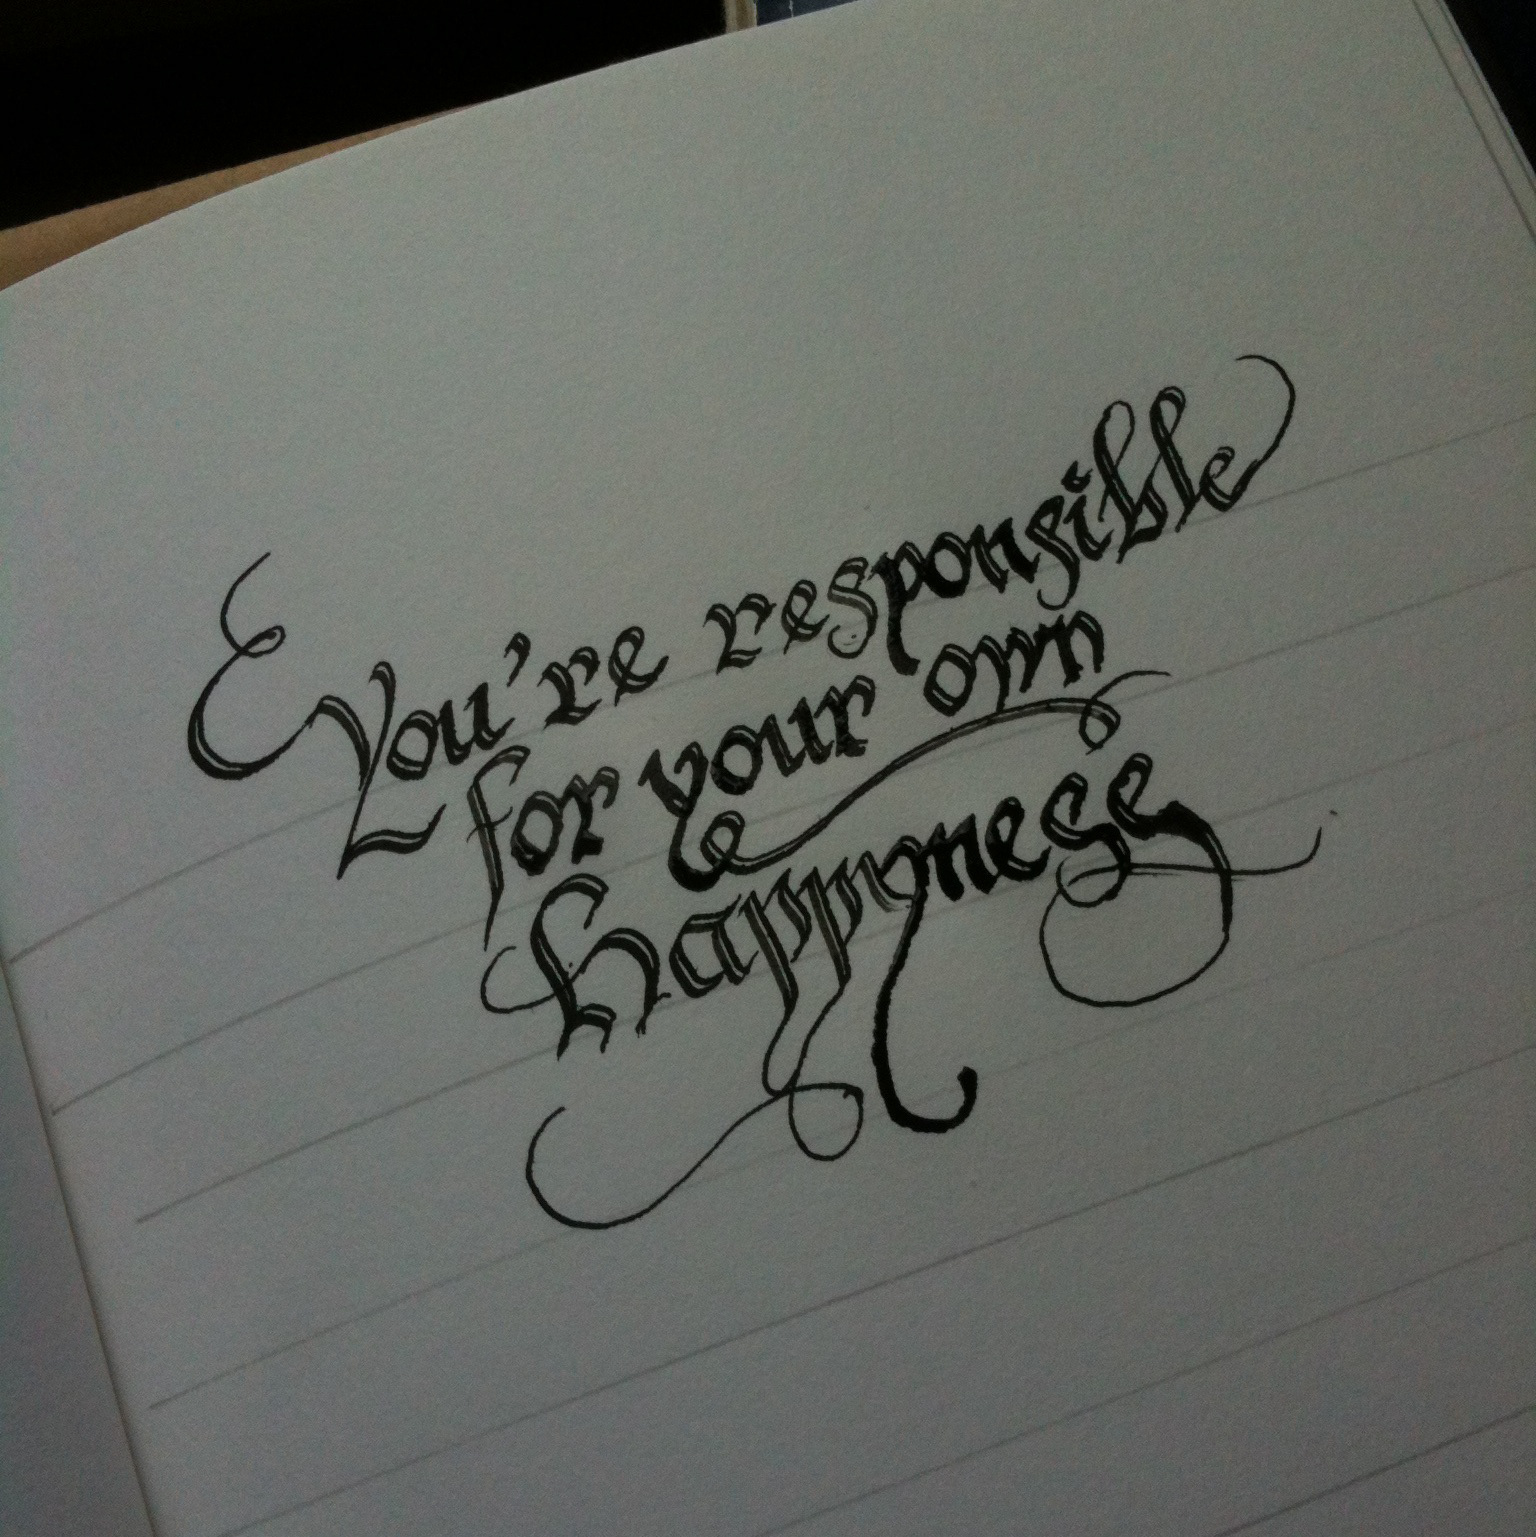 You're responsible
for your own
happyness